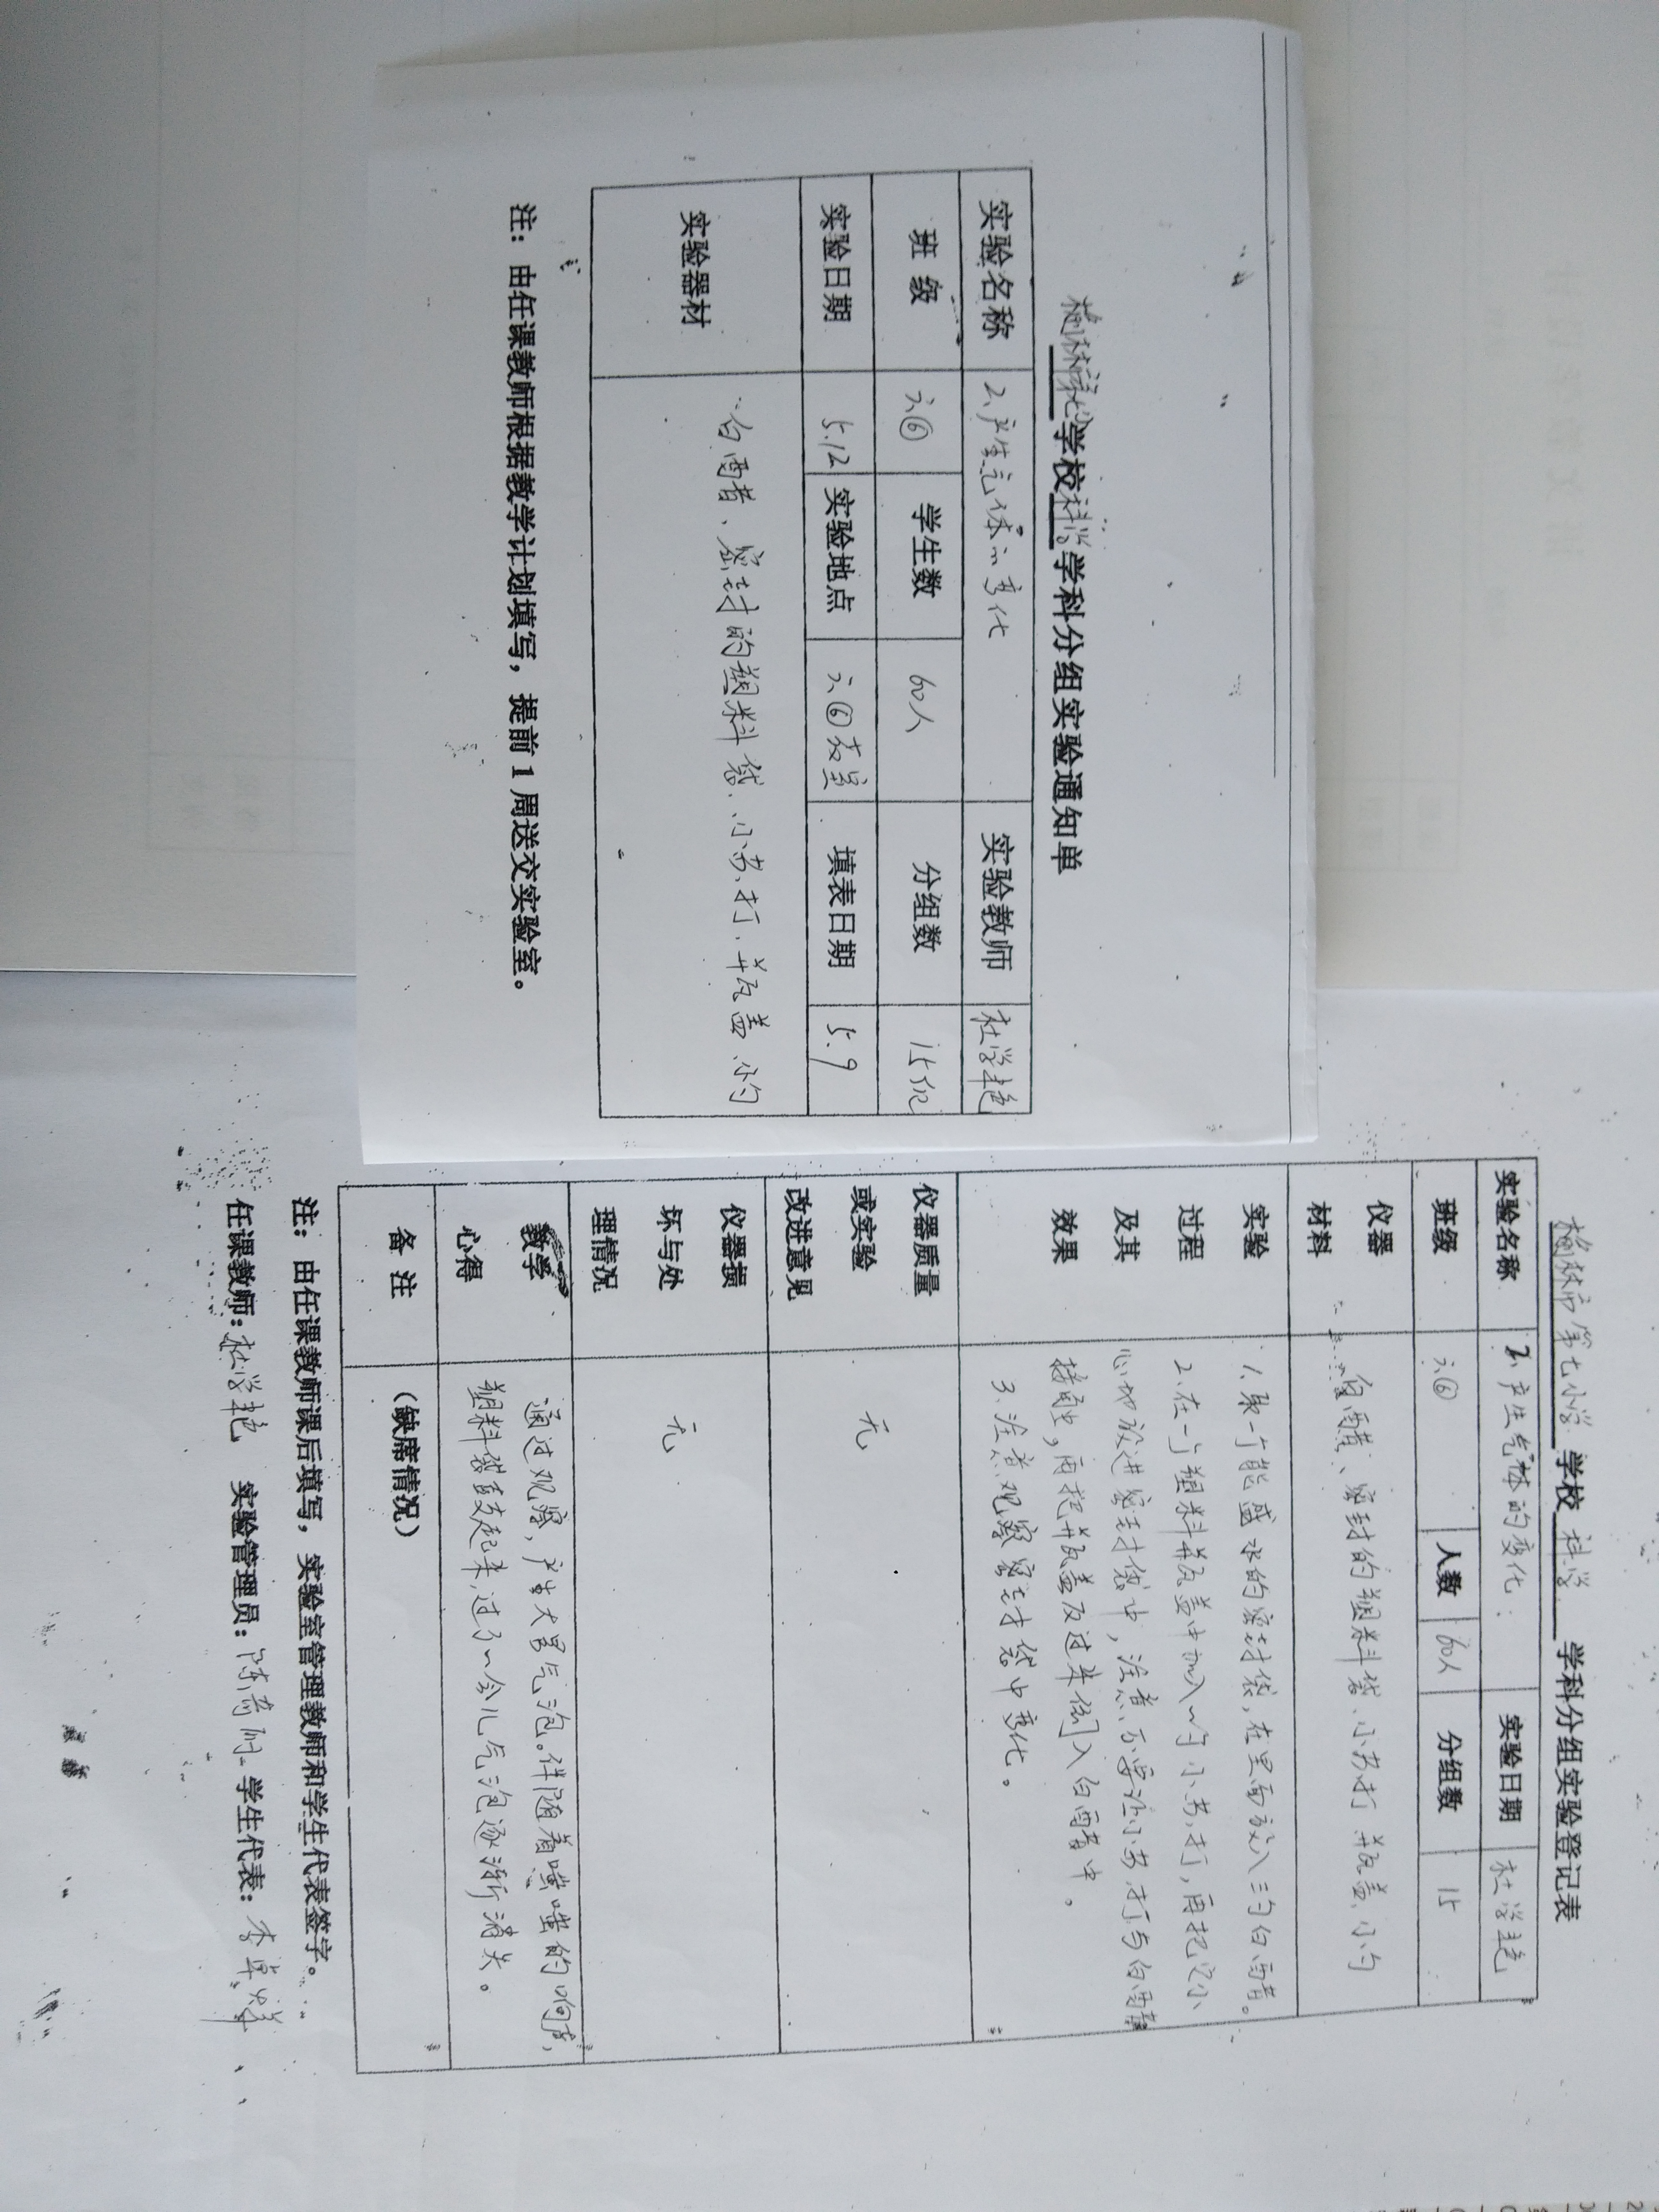 榆林市第七小学校科学学科分组实验通知单
实验名称 2、产生气体的变化 实验教师 杜学艳
班 级 六⑥ 学生数 60人 分组数 15组
实验日期 5.12 实验地点 六⑥教室 填表日期 5.9
实验器材 白醋、密封的塑料袋、小苏打、瓶盖、小勺
注：由任课教师根据教学计划填写，提前1周送交实验室。
榆林市第七小学 学校 科学 学科分组实验登记表
实验名称 2、产生气体的变化 实验日期 杜学艳
班级 六⑥ 人数 60人 分组数 15
仪器
材料 白醋、密封的塑料袋、小苏打、瓶盖、小勺
实验
过程
及其
效果
1、取一个能盛水的密封袋，在里面放入三勺白醋。
2、在一个塑料瓶盖中加入一勺小苏打，再把它小
心地放进密封袋中，注意不要让小苏打与白醋
接触，再把瓶盖反过来倒入白醋中。
3、注意观察密封袋中变化。
仪器质量
或实验
改进意见 无
仪器损
坏与处
理情况 无
教学
心得
通过观察，产生大量气泡。伴随着嗤嗤的响声，
塑料袋鼓起来，过了一会儿气泡逐渐消失。
备 注 （缺席情况）
注：由任课教师课后填写，实验室管理教师和学生代表签字。
任课教师：杜学艳 实验管理员：陈 学生代表：李